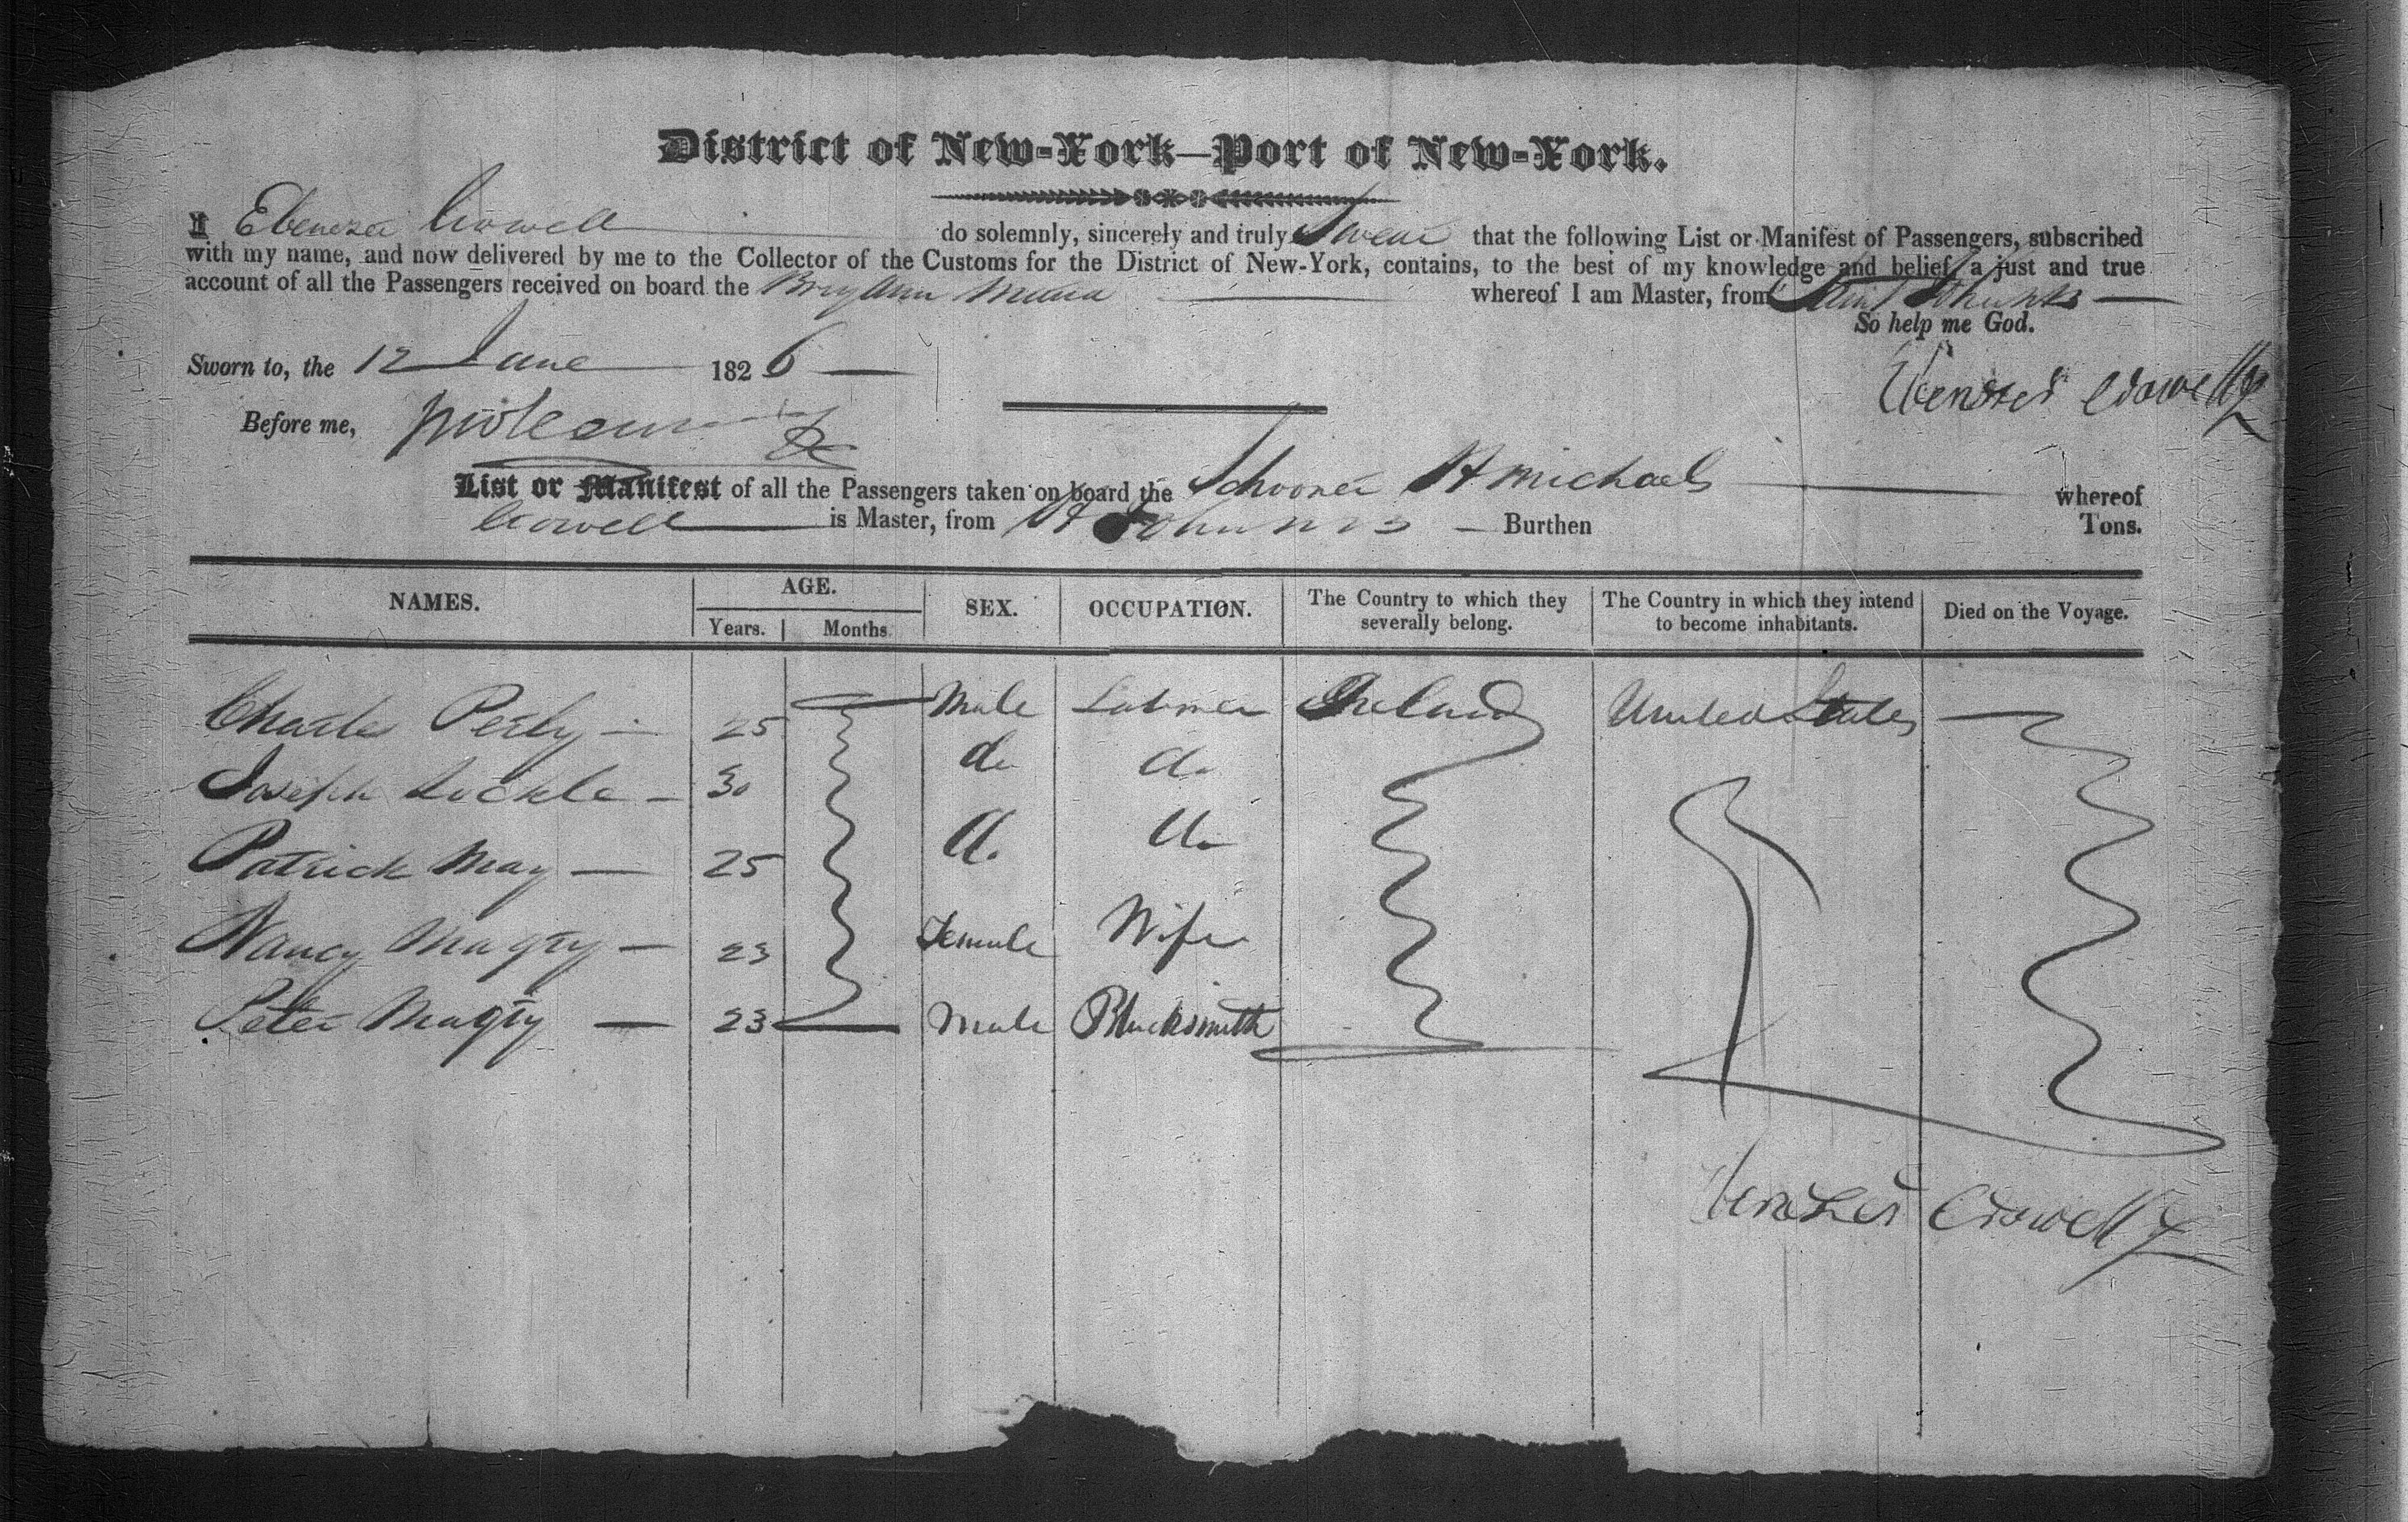 District of New-York—Port of New-York.
I Ebenezer Crowell do solemnly, sincerely and truly Swear that the following List or Manifest of Passengers, subscribed
with my name, and now delivered by me to the Collector of the Customs for the District of New-York, contains, to the best of my knowledge and belief, a just and true
account of all the Passengers received on board the Brig Ann Maria whereof I am Master, from Saint Johns
So help me God.
Sworn to, the 12 June 1826
Ebenezer Crowell
Before me,
List or Manifest of all the Passengers taken on board the Schooner St Michaels whereof
Crowell is Master, from St Johns Burthen Tons.
NAMES. AGE. SEX. OCCUPATION. The Country to which they severally belong. The Country in which they intend to become inhabitants. Died on the Voyage.
Years. Months.
Charles Perly 25 Male Labourer Ireland United States
Joseph 30 do do
Patrick May 25 do do
Nancy Magry 23 Female Wife
Peter Magry 23 Male Blacksmith
Ebenezer Crowell